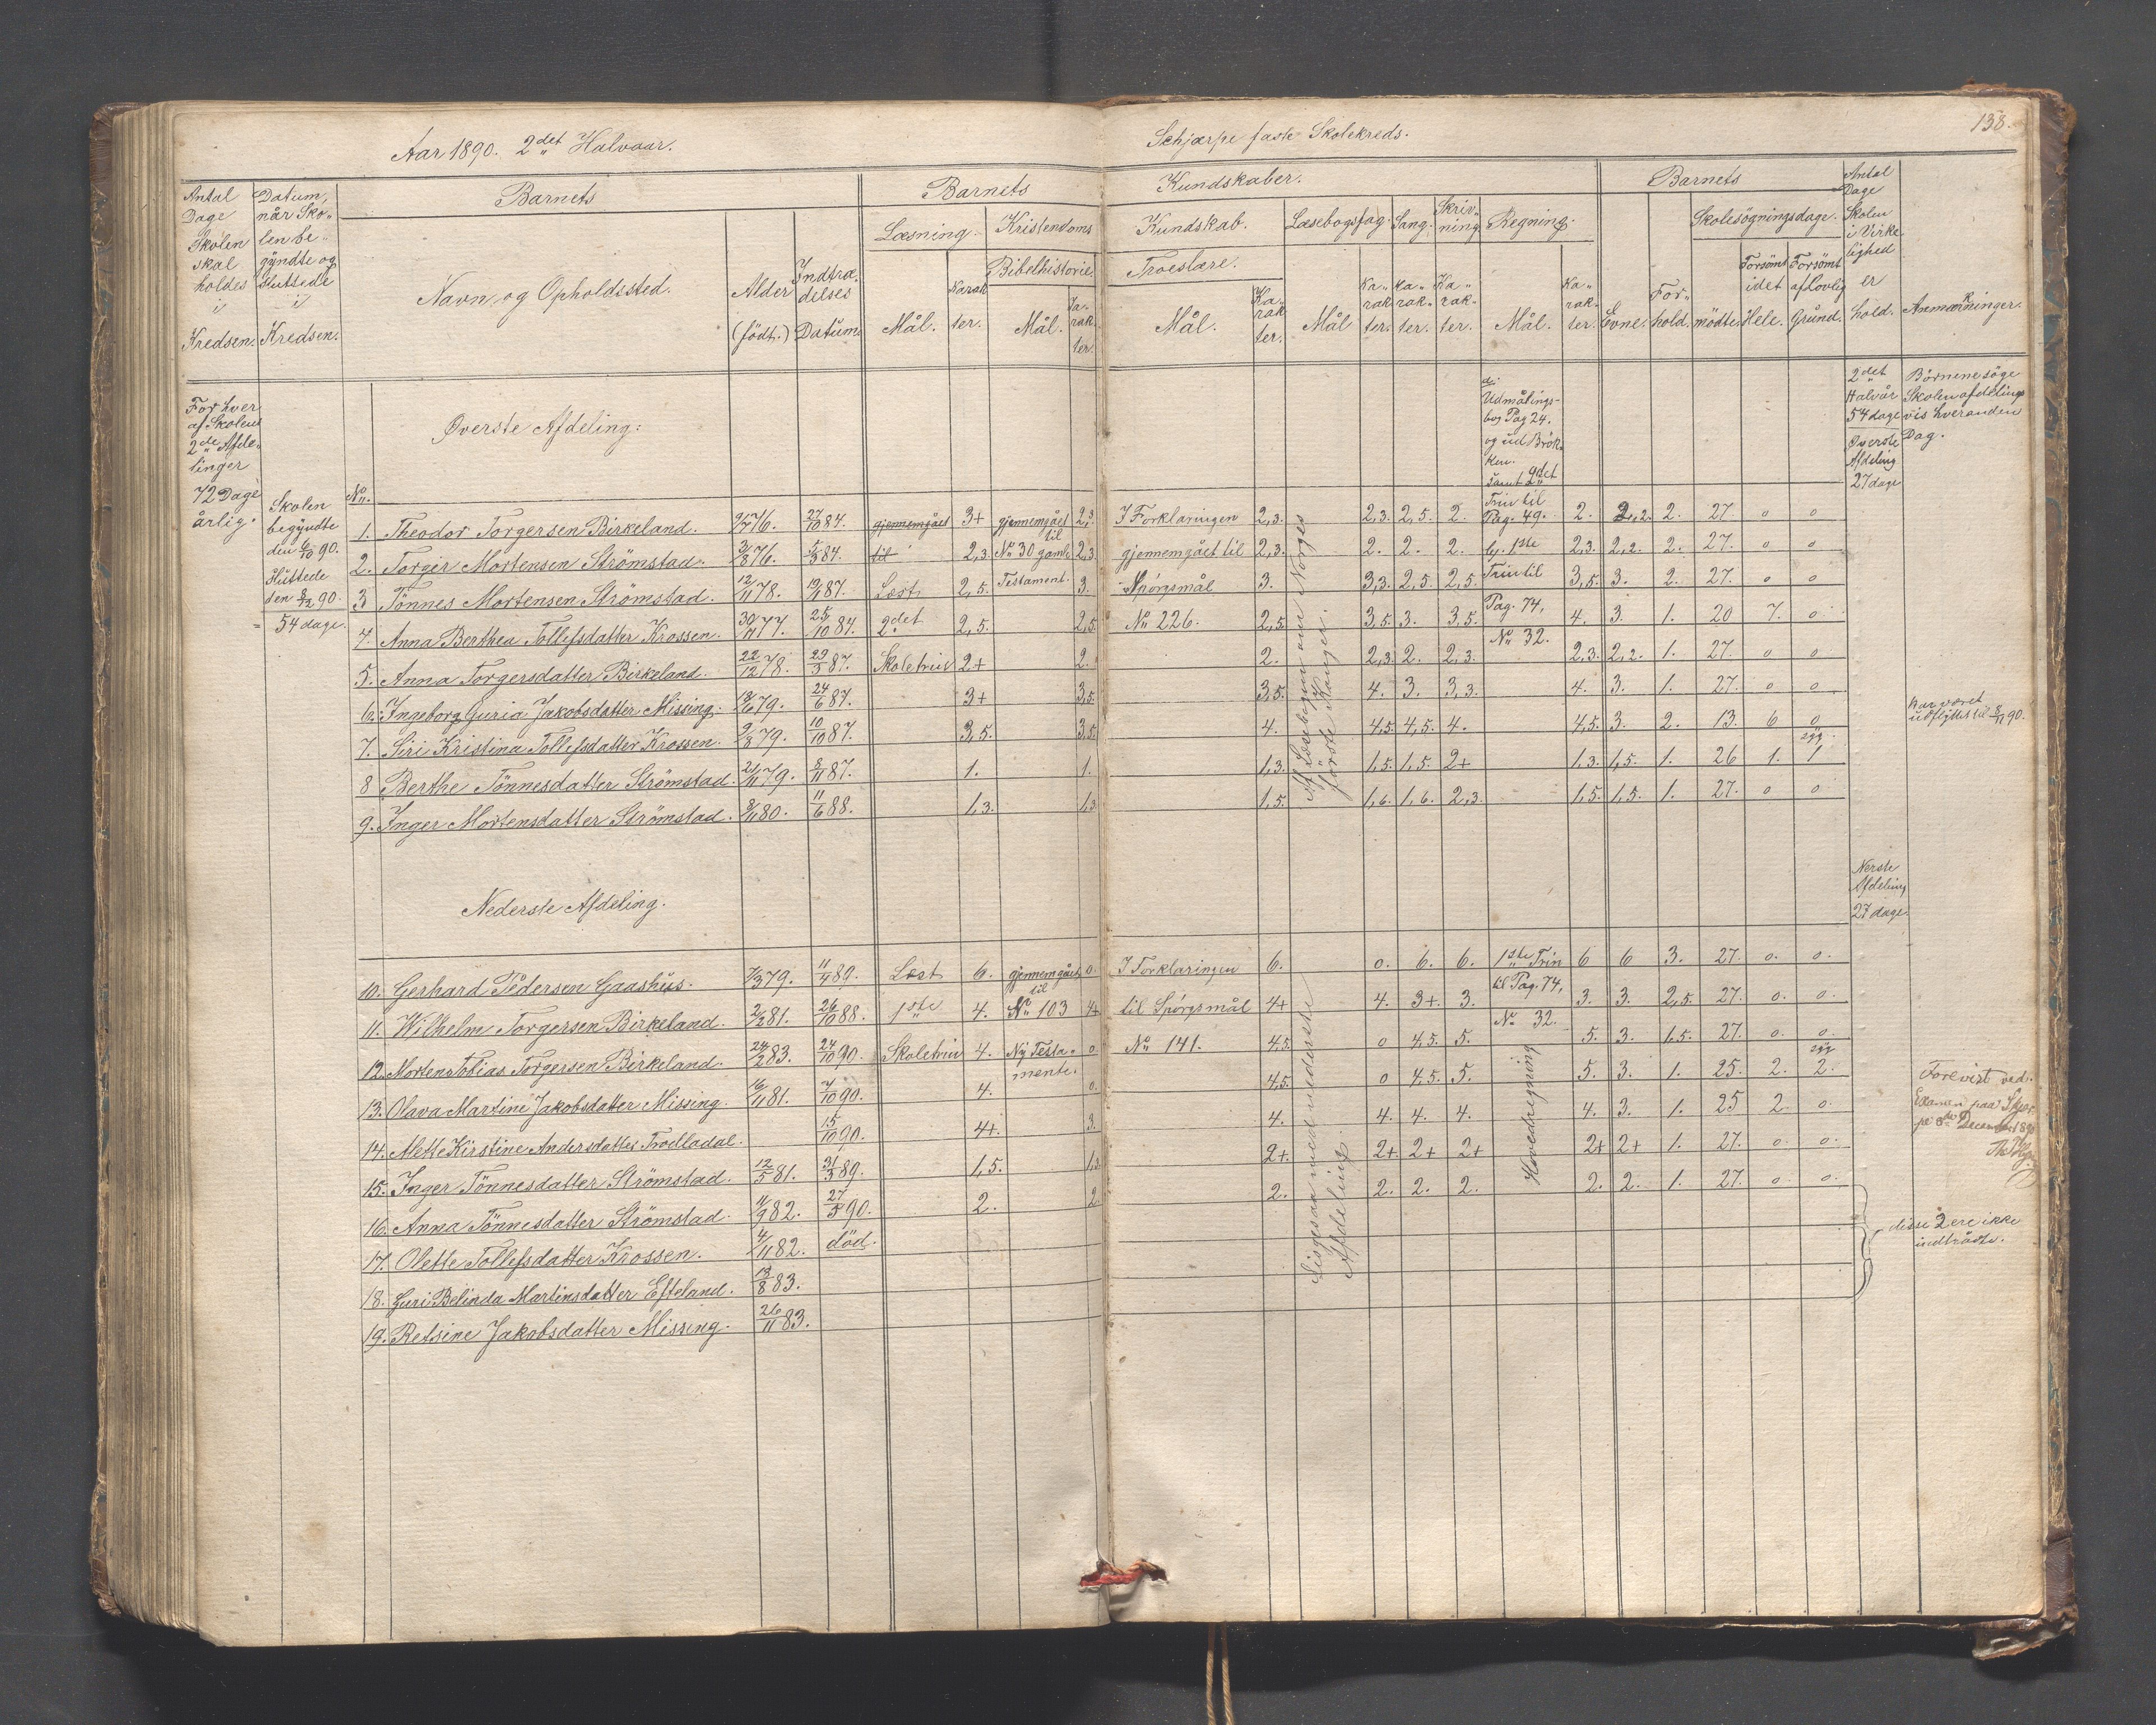 Aar 1890. 2det Halvaar.
Schjærpe faste Skolekreds.
138.
Antal Dage Skolen skal holdes i Kredsen.
Datum, når Skolen begyndte og sluttede i Kredsen.
Barnets
Navn og Opholdssted.
Alder (født.)
Indtrædelses Datum.
Barnets
Kundskaber.
Læsning.
Mål.
Karakter.
Kristendoms
Kundskab.
Bibelhistorie.
Mål.
Karakter.
Troeslære.
Mål.
Karakter.
Læsebogsfag.
Mål
Karakter.
Sang.
Karakter.
Skrivning
Karakter.
Regning.
Mål.
Karakter.
Barnets
Evne.
Forhold.
Skolesøgningsdage.
mødte
Forsømt idet Hele.
Forsømt af lovlig Grund.
Antal Dage Skolen i Virkelighed er hold.
Anmærkninger.
For hver af Skolens 2de Afdelinger 72 Dage årlig.
Skolen begyndte den 6/10 90. Sluttede den 8/12 90. = 54 dage.
Øverste Afdeling:
di Udmålingsbog Pag 24. og ud Brøken. samt 2det Trin til Pag. 49.
2det Halvår 54 dage
Øverste Afdeling 27 dage
Børnene søge Skolen afdelingsvis hveranden Dag.
No.
1. Theodor Torgersen Birkeland. 9/7 76. 27/10 84. gjennemgået 3+ gjennemgået til 2,3 I Forklaringen 2,3. 2,3. 2,5. 2. 2. 2,2. 2. 27. 0 0
2. Torgir Mortensen Strömstad. 3/8 76. 5/3 84. til 2,3. No 30 gamle 2,3. gjennemgået til 2,3. 2. 2. 2. 2,3. 2,2. 2. 27. 0 0
3 Tönnes Mortensen Strömstad. 12/11 78. 19/1 87. Læst 2,5. Testament. 3. Spørgsmål 3. 3,3. 2,5. 2,5. Trin til 3,5. 3. 2. 27. 0 0
4. Anna Berthea Tollefsdatter Krossen. 30/11 77. 25/10 84. 2det 2,5. 2,5. No 226. 2,5. 3,5. 3. 3,5. Pag. 74, 4. 3. 1. 20 7. 0.
5. Anna Torgersdatter Birkeland. 22/12 78. 29/3 87. Skoletrin 2+ 2. 2. 2,3. 2. 2,3. No 32. 2,3. 2,2. 1. 27. 0 0
6. Ingeborg Guria Jakobsdatter Missing. 18/6 79. 24/6 87. 3+ 3,5. 3,5. 4. 3. 3,3. 4. 3. 1. 27. 0 0
7. Siri Kristina Tollefsdatter Krossen. 2/8 79. 10/10 87. 3,5. 3,5. 4. 4,5. 4,5. 4. 4,5. 3. 2. 13. 6 0 Har været udflyttet til 8/11 90.
8 Berthe Tönnesdatter Strömstad. 21/11 79. 8/11 87. 1. 1. 1,3. 1,5. 1,5. 2+ 1,3. 1,5. 1. 26 1. syg 1
9. Inger Mortensdatter Strömstad. 8/11 80. 11/6 88. 1,3. 1,3 1,5. 1,6. 1,6. 2,3. 1,5. 1,5. 1. 27. 0 0
Af Læsebogen om Norges første Konger.
Nederste Afdeling.
Nerste Afdeling 27 dage.
10. Gerhard Pedersen Gaashus. 7/3 79. 11/4 89. Læst 6. gjennemgået til 0. I Forklaringen 6. 0. 6. 6. 1ste Trin 6 6 3. 27. 0. 0.
11. Wilhelm Torgersen Birkeland. 2/2 81. 26/10 88. 1ste 4. No 103 4+ til Spørgsmål 4+ 4. 3+. 3. til Pag. 74, 3. 3. 2,5. 27. 0. 0.
12. Morten Tobias Torgersen Birkeland. 24/2 83. 24/10 90. Skoletrin 4. Ny Testamente. 0. No 141. 4,5. 0 4,5. 5. No 32. 5. 3. 1,5. 27. 0. 0.
13. Olava Martine Jakobsdatter Missing. 16/11 81. 7/10 90. 4. 0. 4,5. 0 4,5. 5. 5. 3. 1. 25. 2. syg 2.
14. Mette Kirstine Andersdatter Trolladal. 15/10 90. 4+. 3. 4. 4. 4. 4. 4. 3. 1. 25 2. 0.
15. Inger Tönnesdatter Strömstad. 12/5 81. 31/3 89. 1,5. 1,3 2+. 2+. 2+ 2+ 2+ 2+ 1. 27. 0. 0.
16. Anna Tönnesdatter Strömstad. 11/9 82. 27/5 90. 2. 2. 2. 2. 2. 2. 2. 2. 1. 27. 0. 0.
17. Olette Tollefsdatter Krossen. 4/11 82. död.
18. Guri Belinda Martinsdatter Efteland. 13/8 83.
19. Retsine Jakobsdatter Missing. 26/11 83.
Ligesaa med nederste Afdeling.
Hovedregning
Forevist ved Examen paa Skjærpe 8de December 1890
disse 2 ere ikke indtrådte.